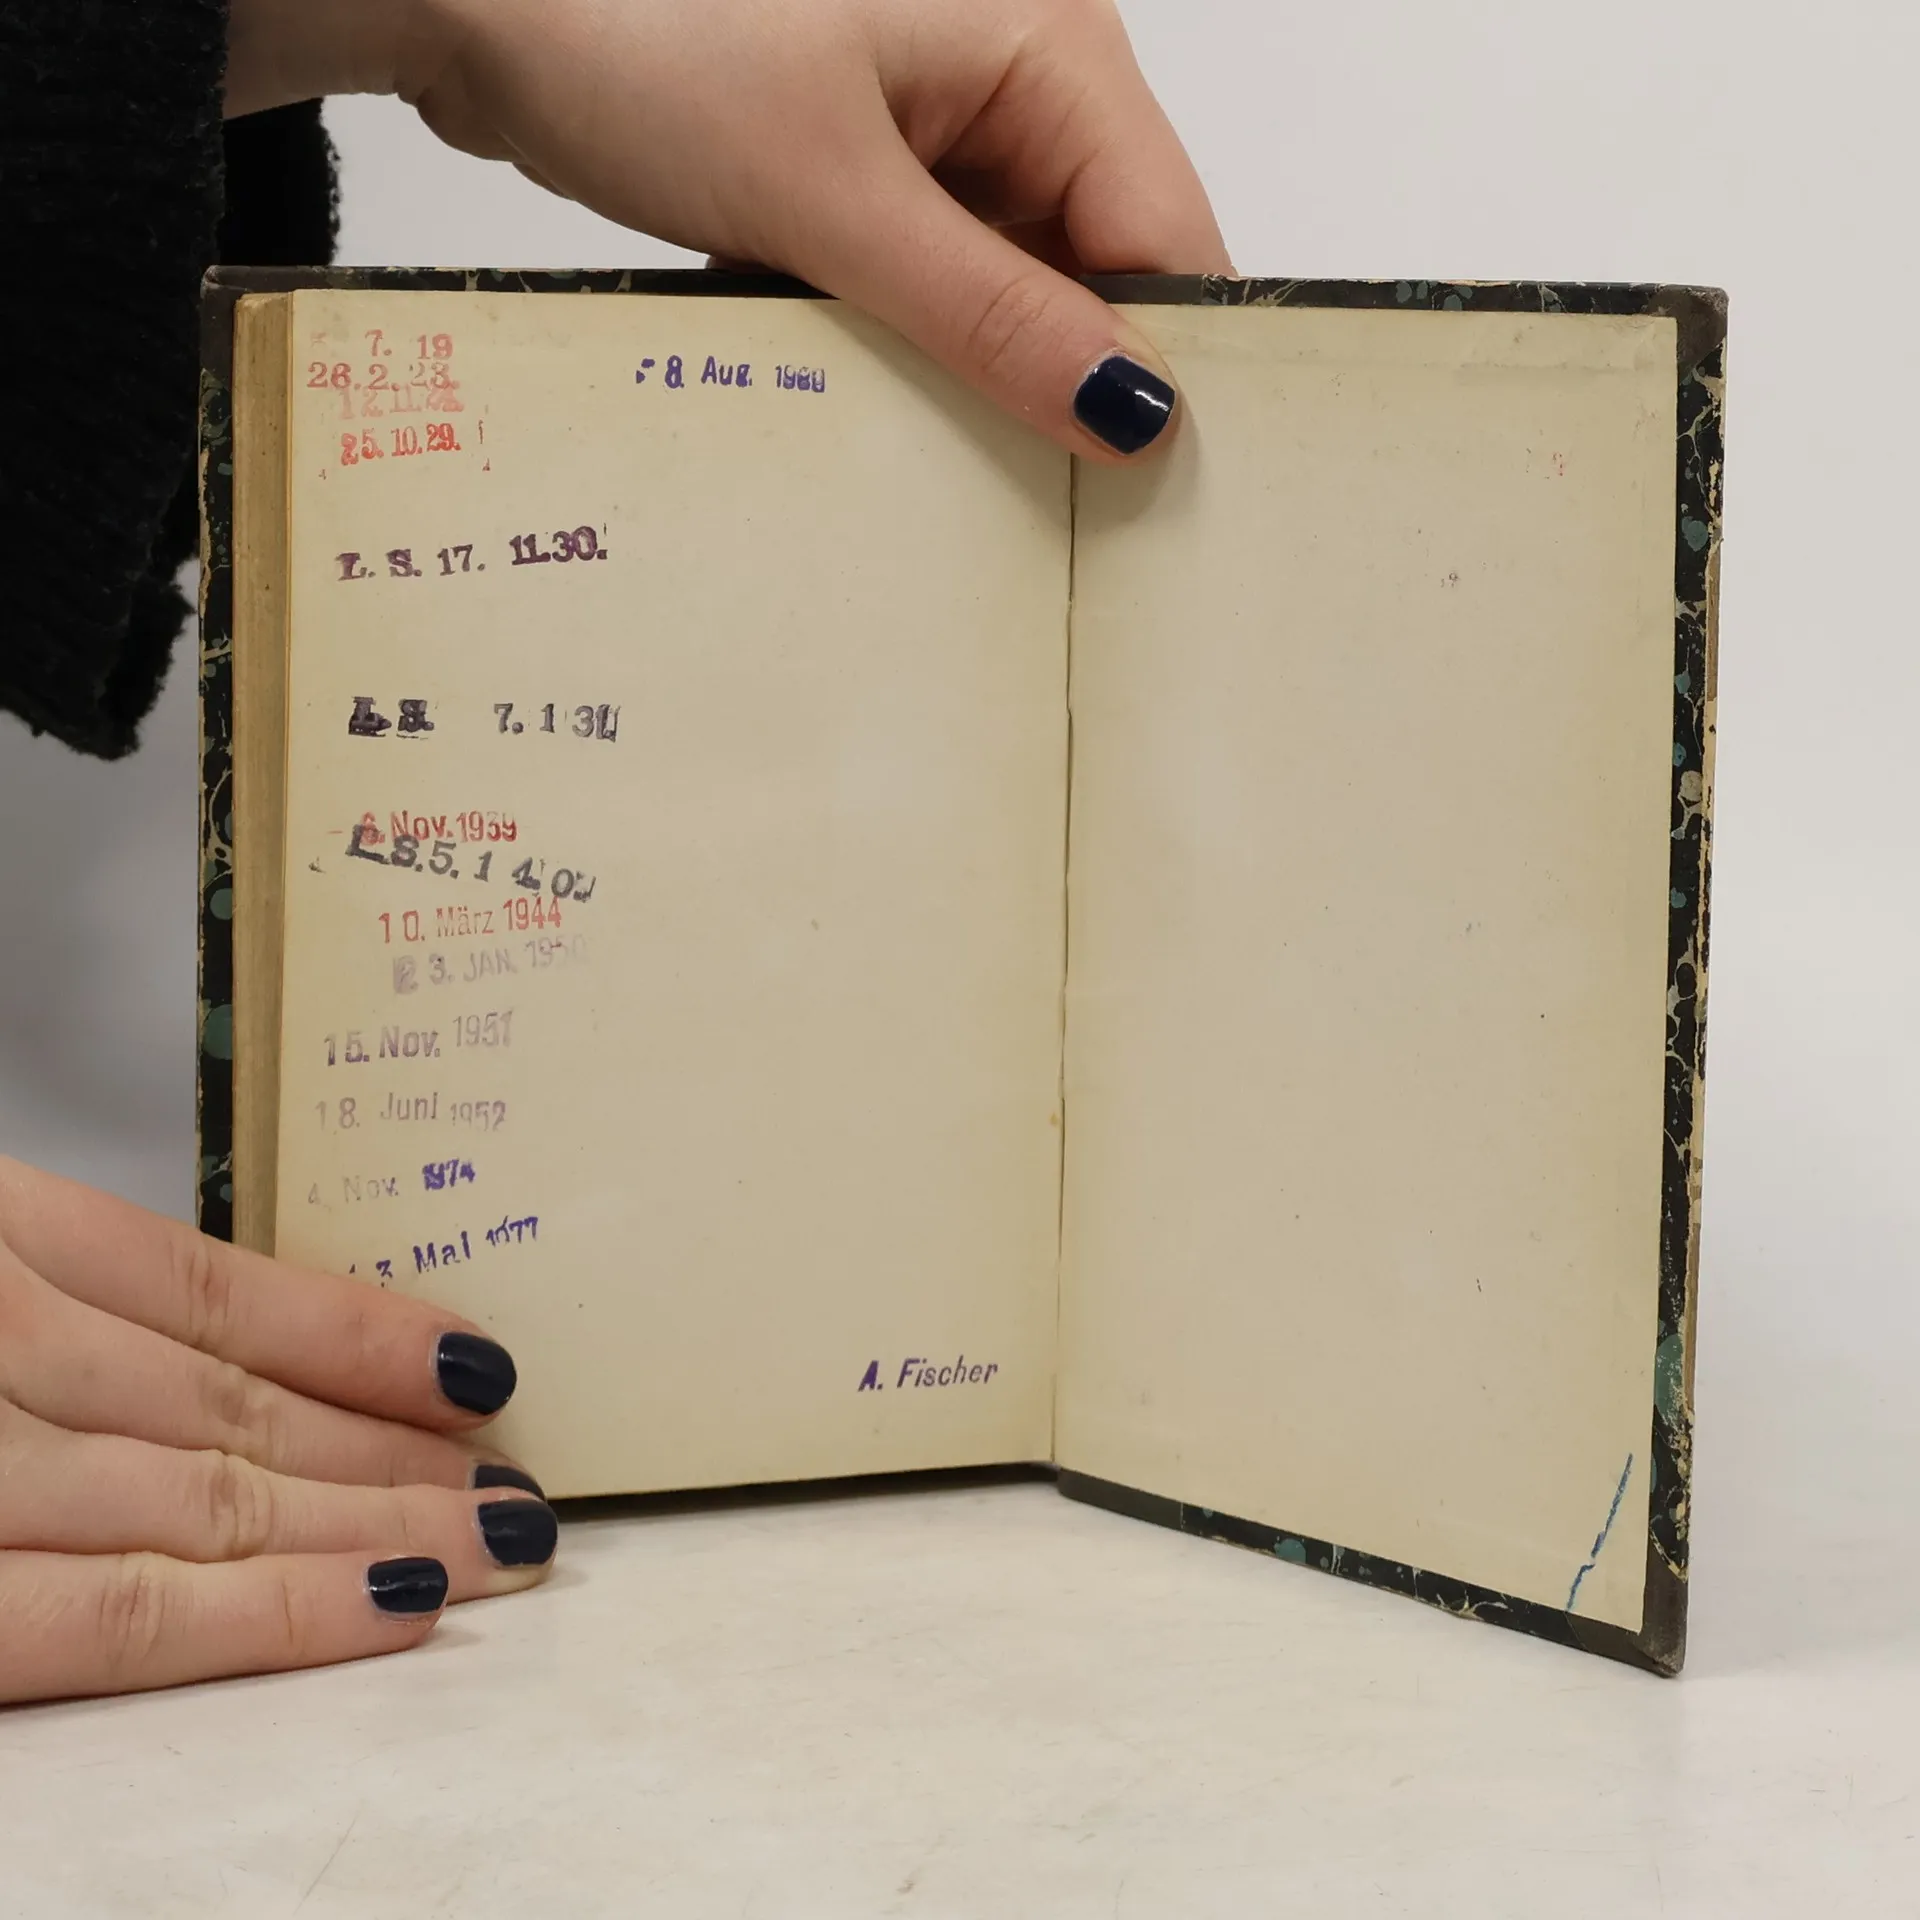 7. 19
26.2.23.
25.10.29.
L. S. 17. 11.30.
L. S. 7. 1 31
6. Nov. 1939
L. S. 5. 1
10. März 1944
23. JAN. 1950
15. Nov. 1951
18. Juni 1952
4. Nov. 1974
3 Mai 1977
8 Aug. 1980
A. Fischer